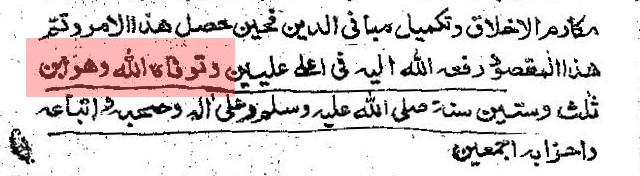 مكارم الاخلاق وتكميل مبانى الدين فحين حصل هذا الامر وتم
هذا المقصود رفعه الله اليه فى اعلى عليين وتوفاه الله وهو ابن
ثلث وستين سنة صلى الله عليه وسلم وعلى اله وصحبه واتباعه
واحزابه اجمعين